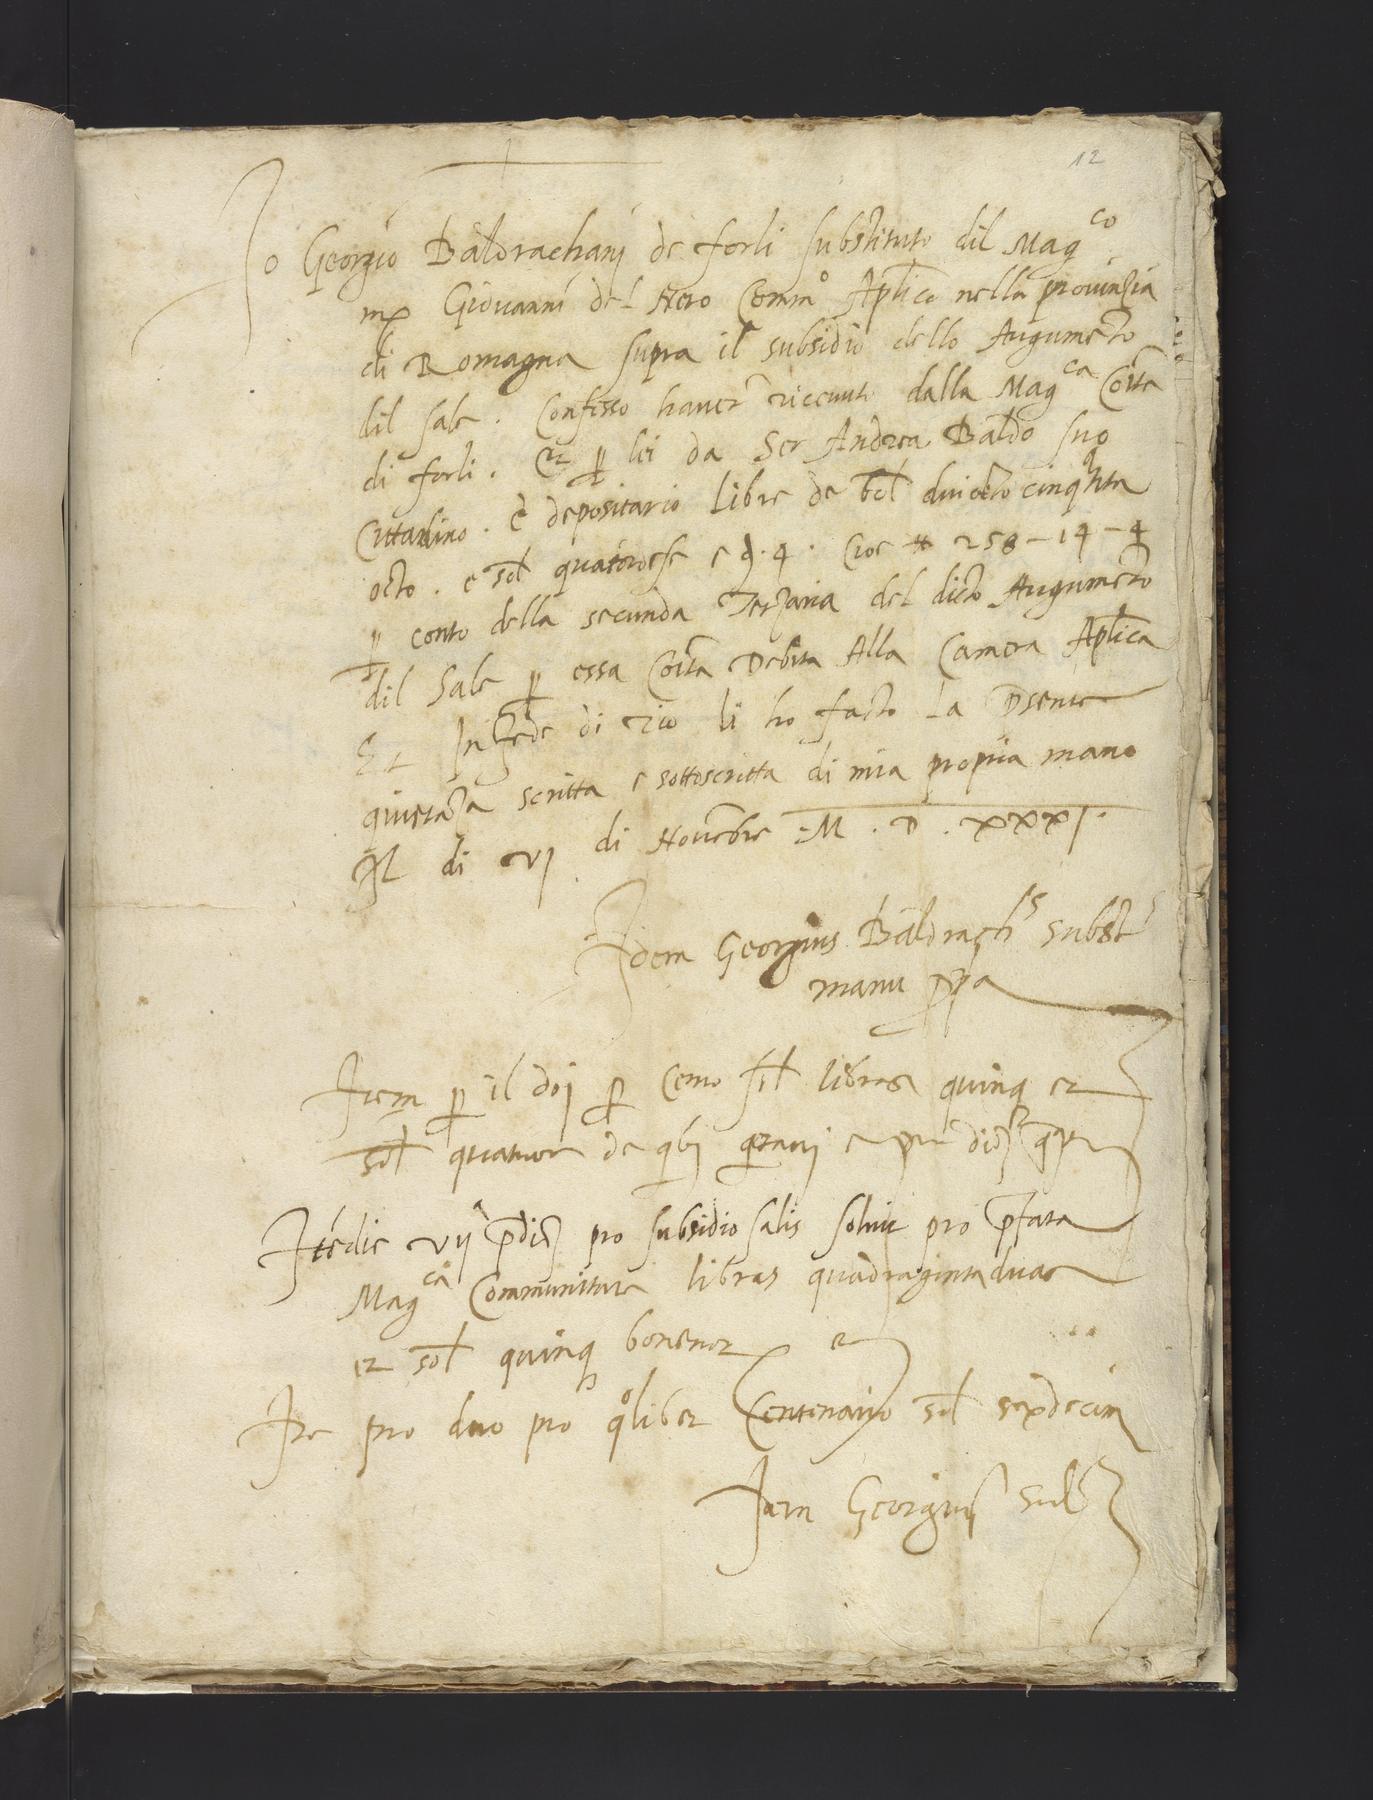 12
Io Georgio Baldrachani de forli substituto dil Mag^co
m̃ Giovanni del Nero Comm^o Aplico nella provinzia
di Romagna supra il subsidio dello Augumẽto
dil sale. Confesso haver ricevuto dalla Mag^ca Coita
di forli. Et p lei da Ser Andrea Baldo suo
Cittadino. e depositario libre de bol duicẽto cinquãta
octo. e sol quatordese e d. 4. Cioe # 258-14-4
p conto della secunda Terzaria del dicto Augumẽto
dil Sale p essa Coita Debita Alla Camera Aplica
Et In fede di cio li ho facto la Psente
quietãza scritta e sottoscritta di mia propria mano
Il di vi di Novẽbre .M.D.XXXI.
Idem Georgius Baldrach^s Subst^s
manu ppa
Item p il doi p Cento sil libras quinq et
sol quatuor de qbj
Itẽ die vij pdic pro subsidio salis solvit pro pfata
Mag^ca Communitate libras quadragintaduas
et sol quinq bonenor et
Ite pro duo pro qolibet Centenario sol sexdecim
Idem Georgius Subs